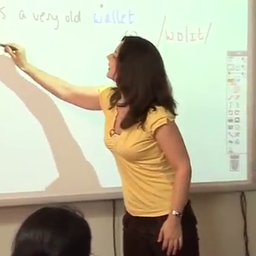 s a very old wallet
/wɒlɪt/